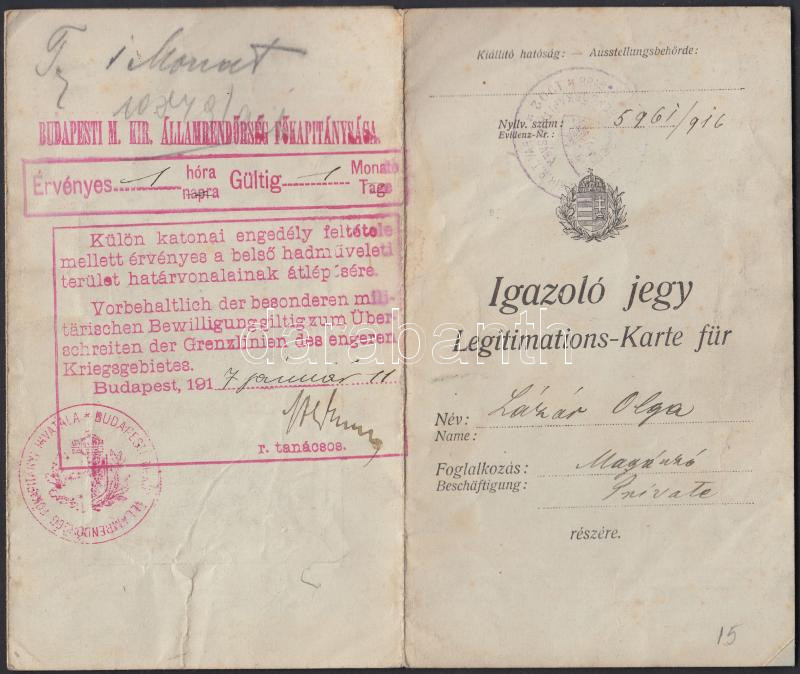 1 Monat
BUDAPESTI M. KIR. ÁLLAMRENDŐRSÉG FŐKAPITÁNYSÁGA
Érvényes 1 hóra napra Gültig 1 Monate Tage
Külön katonai engedély feltétele
mellett érvényes a belső hadműveleti
terület határvonalainak átlépésére.
Vorbehaltlich der besonderen mili-
tärischen Bewilligung giltig zum Über
schreiten der Grenzlinien des engeren
Kriegsgebietes.
Budapest, 191 7 január 11
r. tanácsos.
Kiállitó hatóság: — Ausstellungsbehörde:
Nyilv. szám: 5961/916
Evidenz-Nr.:
Igazoló jegy
Legitimations-Karte für
Név: Lázár Olga
Name:
Foglalkozás: Magánzó
Beschäftigung: Private
részére.
15
darabanth